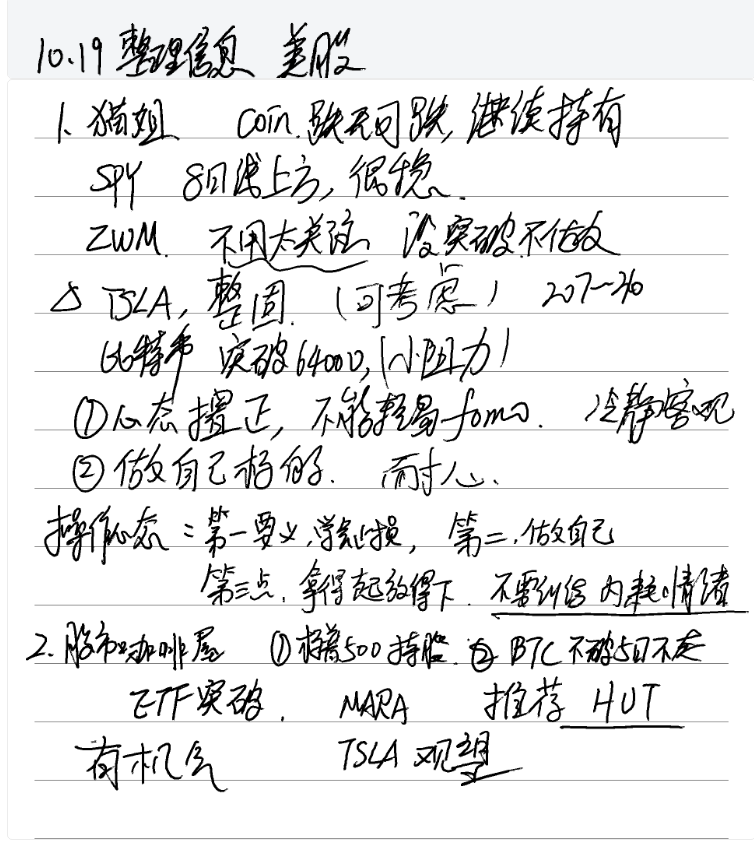 10.19 整理信息 美股
1、猫姐 coin. 跌无可跌, 继续持有
SPY 8日线上方, 很稳.
ZWM. 不用太关注 没突破不做
△ TSLA, 整固. (可考虑) 207-
特币 突破64000, (小阻力)
① 心态摆正, 不能轻易fomo. 冷静客观
② 做自己 耐心.
操作心态: 第一要义, 学会止损, 第二, 做自己
第三点, 拿得起放得下. 不要纠结 内耗情绪
2. 股市咖啡屋 ① 标普500持股. ② BTC 不破5日不走
ETF突破. MARA 推荐 HUT
有机会 TSLA 观望